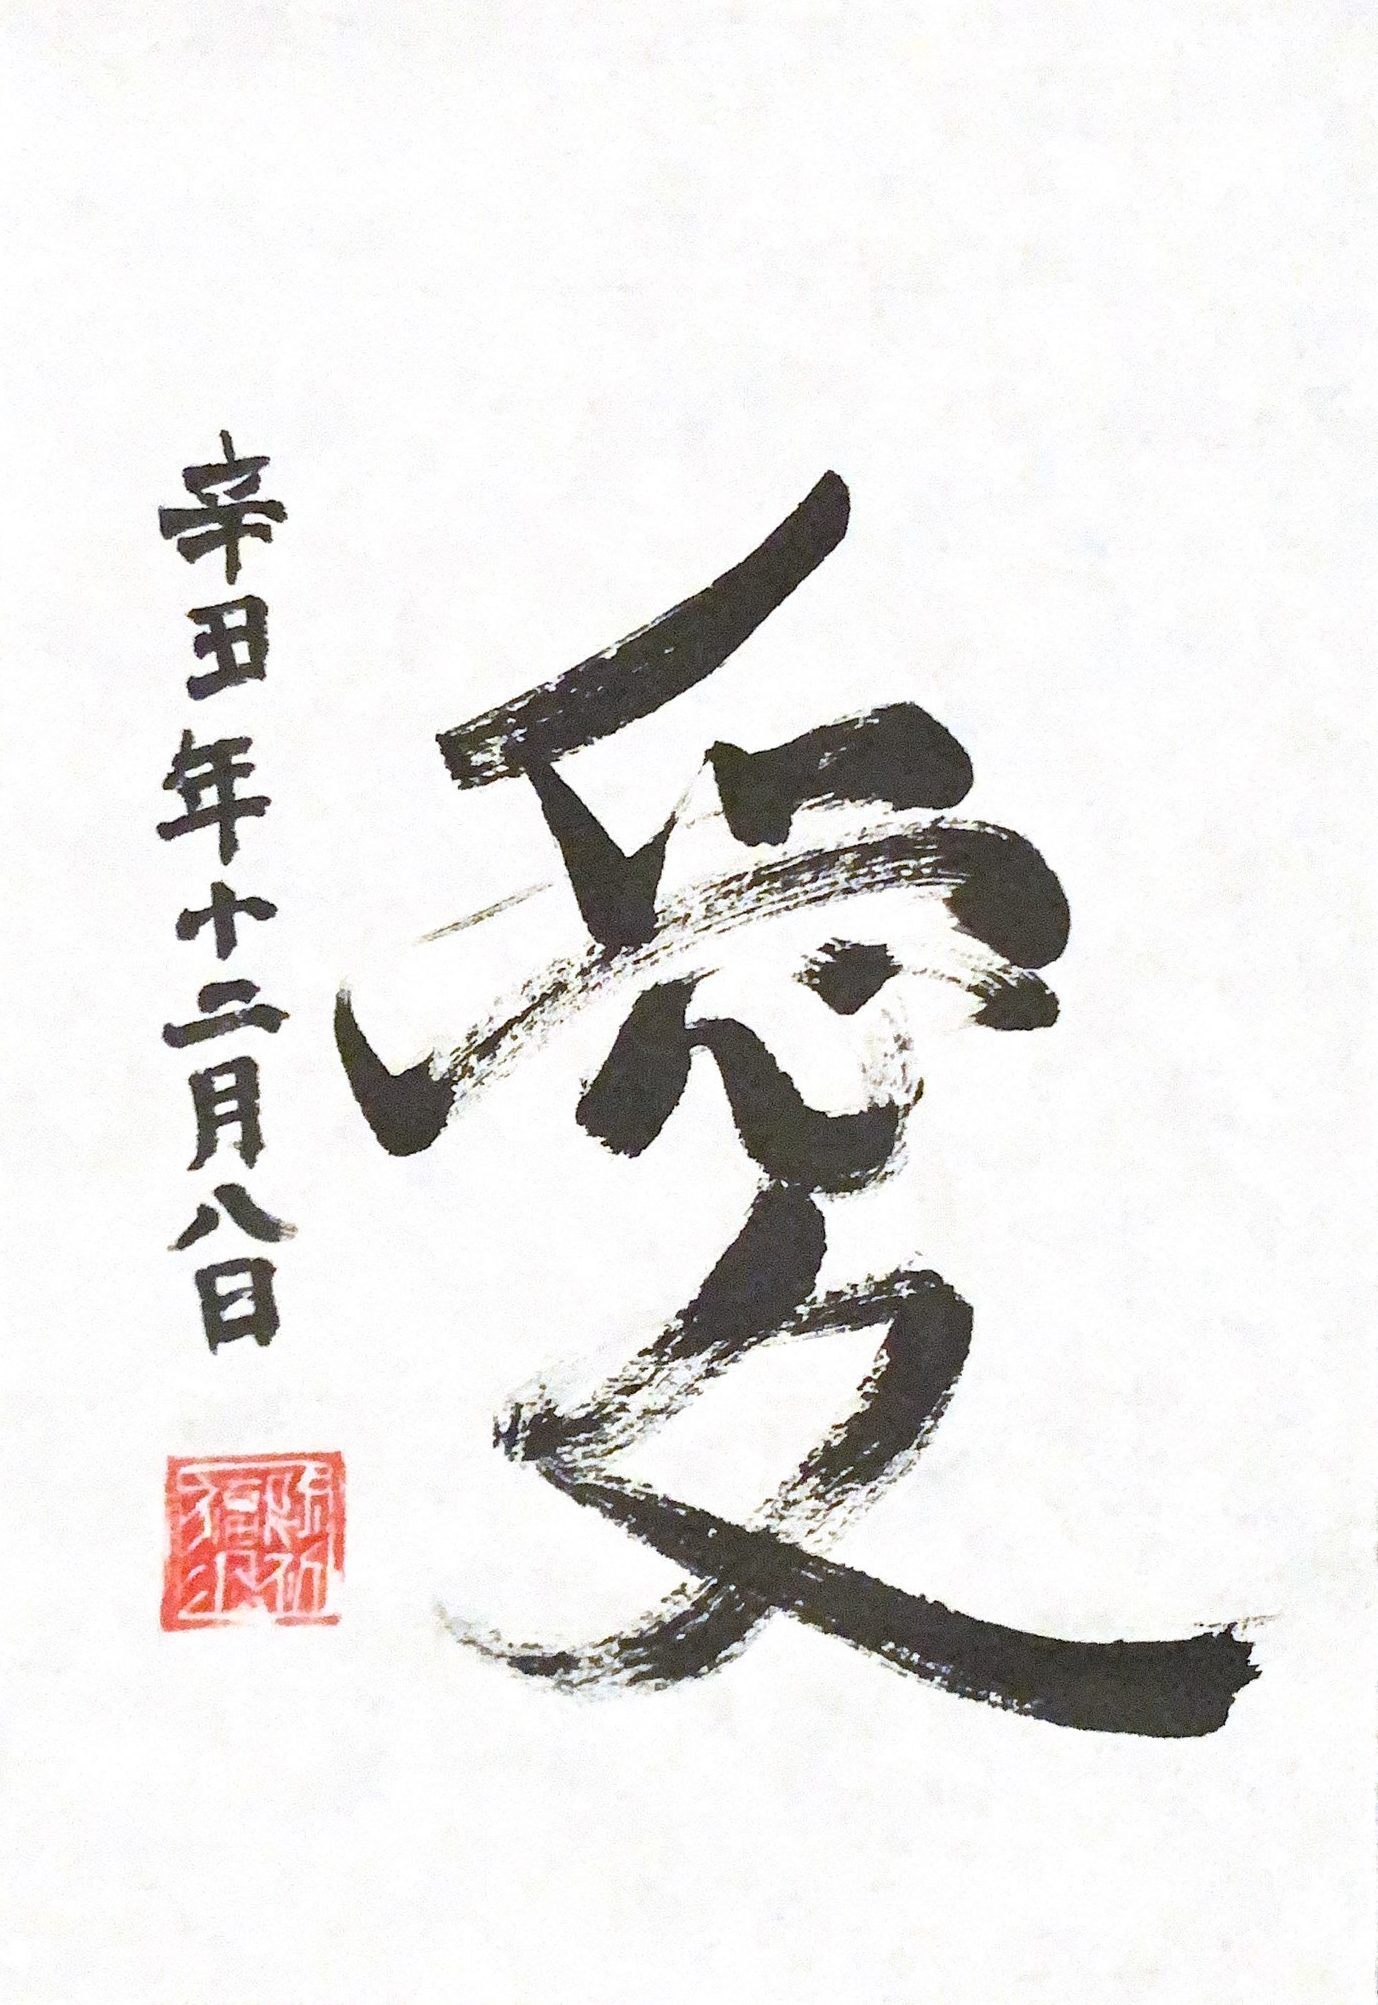 愛
辛丑年十二月八日